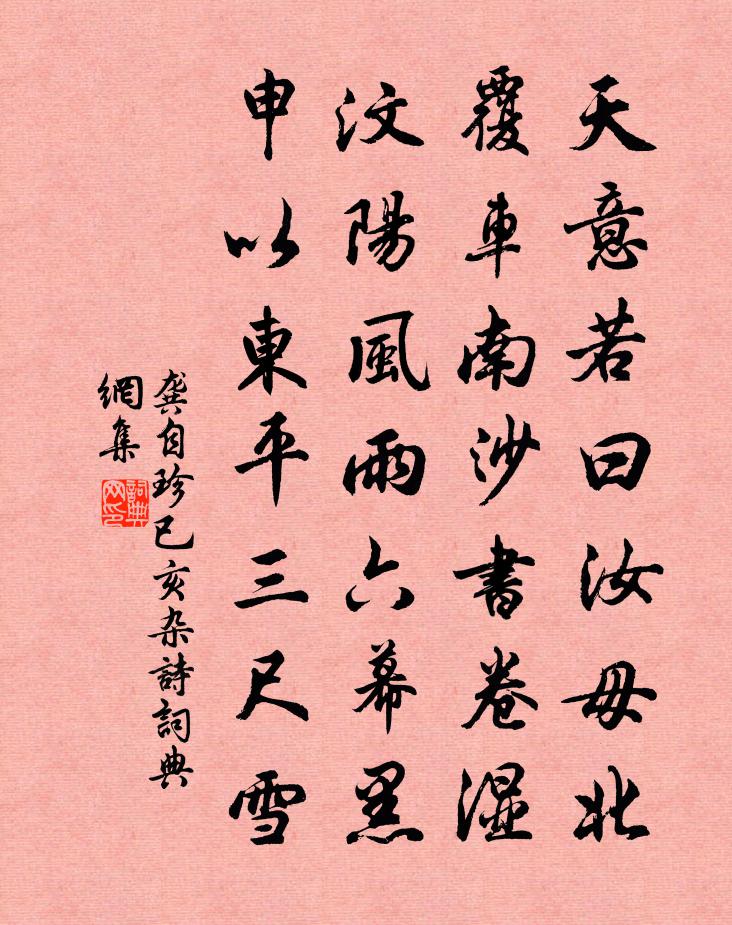 天意若曰汝毋北
覆車南沙書卷濕
汶陽風雨六幕黑
申以東平三尺雪
龔自珍己亥杂詩詞典
網集
詞典網印